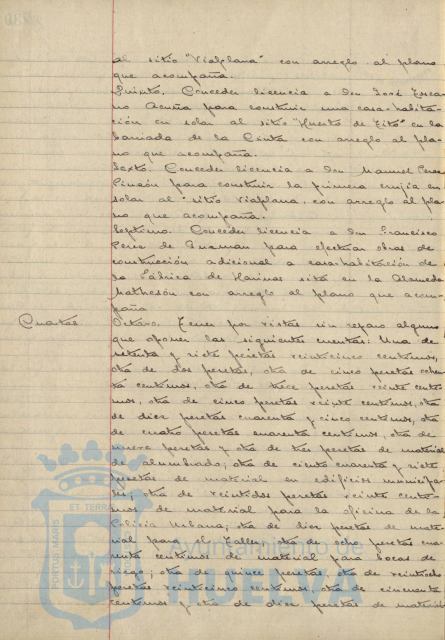 al sitio "Viaplana" con arreglo al plano
que acompaña.
Quinto. Conceder licencia a don José
Acuña para construir una casa-habita-
ción en solar al sitio "Huerto de Tito" en la
barriada de la Cinta con arreglo al pla-
no que acompaña.
Sexto. Conceder licencia a don Manuel Perea
Pinzón para construir la primera crujía en
solar al sitio Viaplana, con arreglo al pla-
no que acompaña.
Septimo. Conceder licencia a don Francisco
Perez de Guzman para efectuar obras de
construcción adicional a casa-habitación de
la Fábrica de Harinas sita en la Alameda
Matheson con arreglo al plano que acom-
paña
Cuentas Octavo. Tener por vistas sin reparo alguno
que oponer las siguientes cuentas: Una de
setenta y siete pesetas veinticinco centimos,
otra de dos pesetas, otra de cinco pesetas ochen-
ta centimos, otra de trece pesetas veinte centi-
mos, otra de cinco pesetas veinte centimos, otra
de diez pesetas cuarenta y cinco centimos, otra
de cuatro pesetas cuarenta centimos, otra de
nueve pesetas y otra de tres pesetas de material
de alumbrado; otra de ciento cuarenta y siete
pesetas de material en edificios municipa-
les; otra de veintidos pesetas veinte centi-
mos de material para la oficina de la
Policía Urbana; otra de diez pesetas de mate-
rial para el Taller; otra de ocho pesetas cua-
renta centimos de material para bocas de
riego; otra de quince pesetas, otra de veintiocho
pesetas veinticinco centimos, otra de cincuenta
centimos y otra de diez pesetas de material
PORTUS MARIS ET TERRAE
Ayuntamiento de
HUELVA